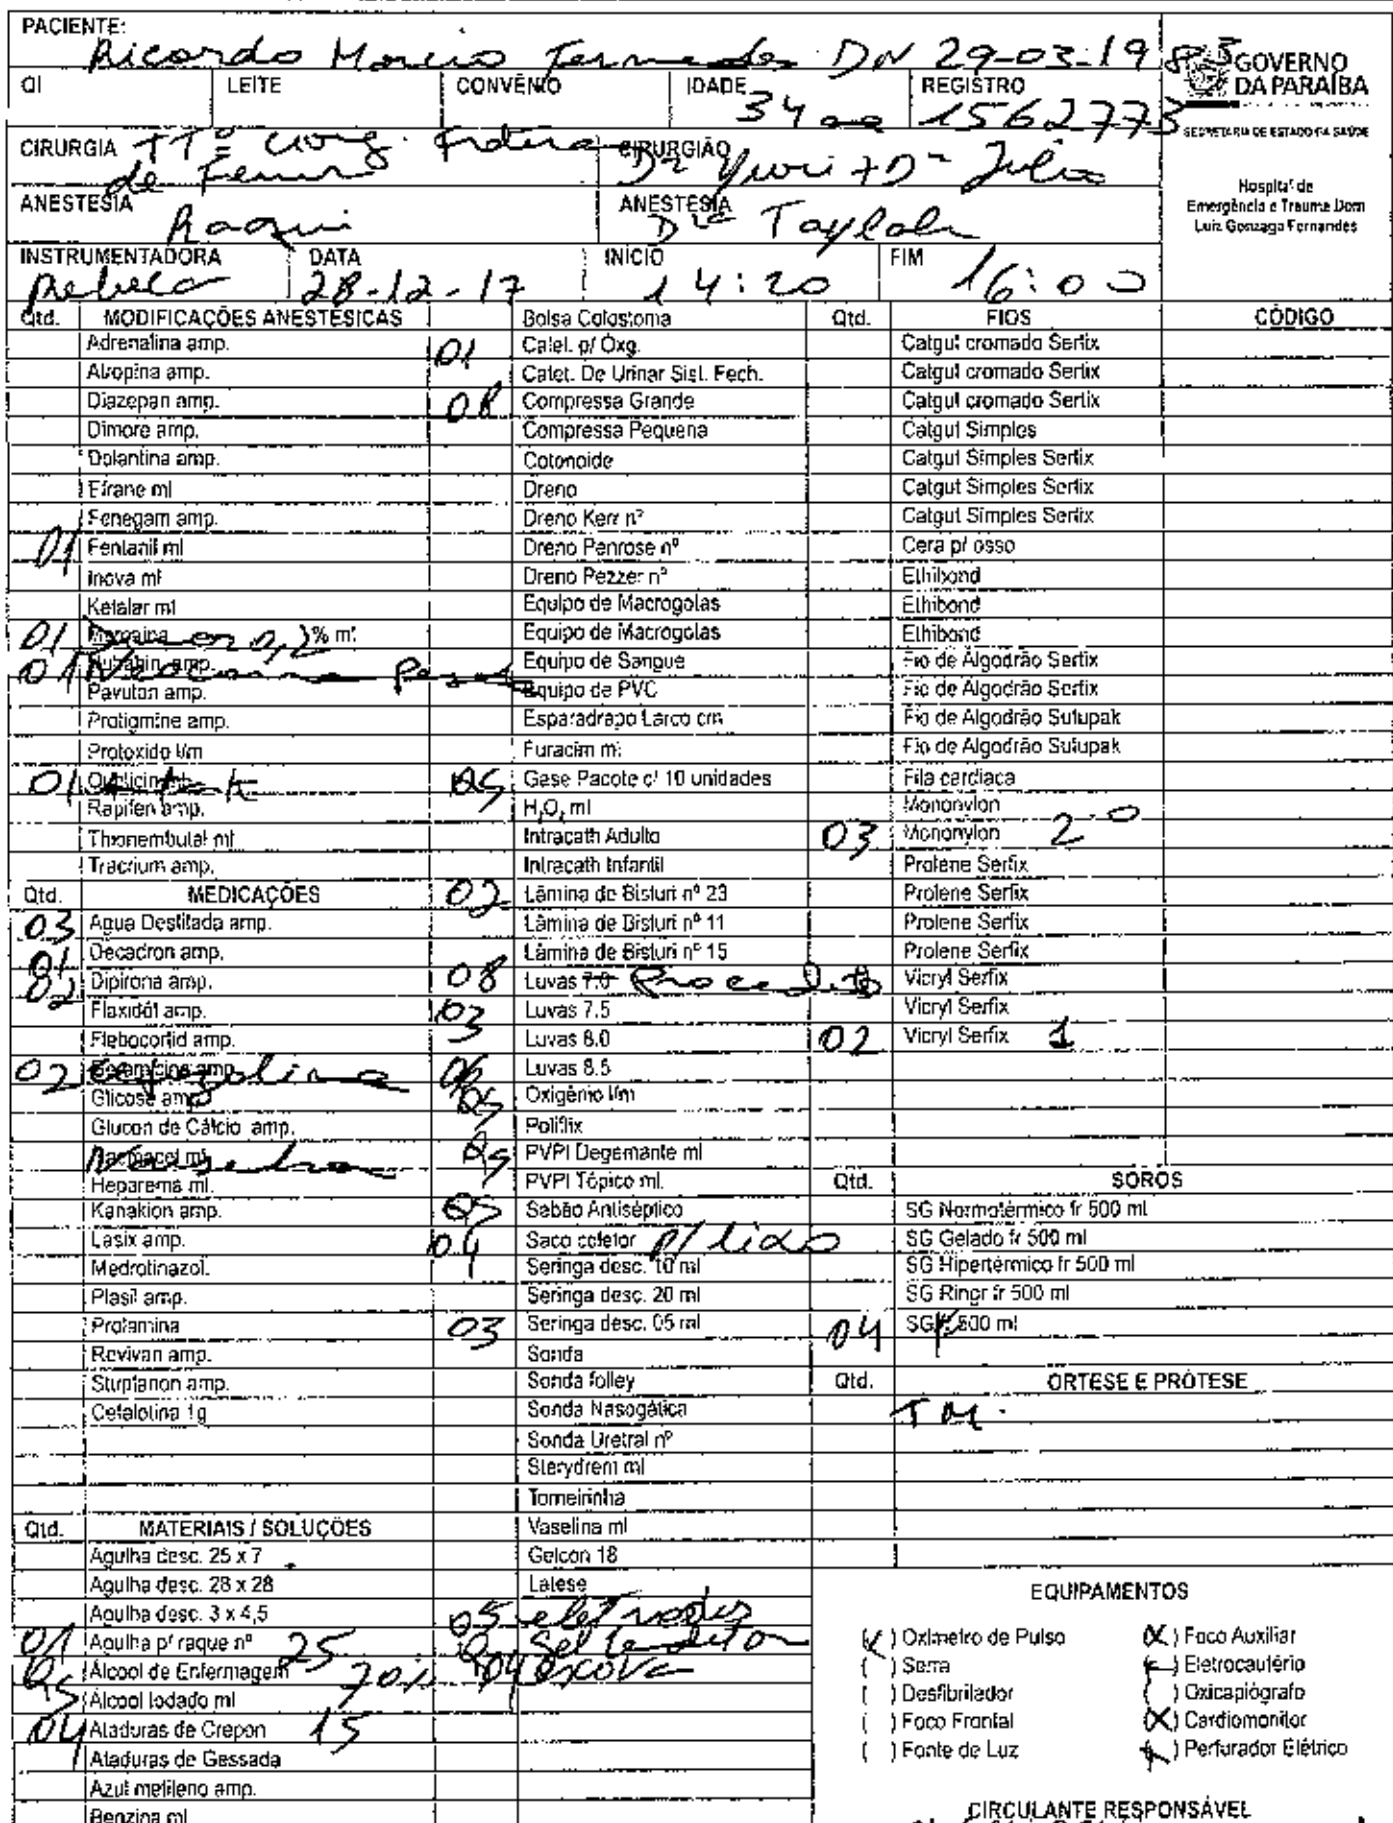 PACIENTE: Ricardo Fernandes DN 29-03-1983
GOVERNO
DA PARAÍBA
SECRETARIA DE ESTADO DA SAÚDE
Hospital de
Emergência e Trauma Dom
Luiz Gonzaga Fernandes
QI LEITE CONVÊNIO IDADE 34 REGISTRO 1562773
CIRURGIA TTº
de Femur
CIRURGIÃO Dr Yuri + Dr Julio
ANESTESIA Raqui ANESTESIA Drª Taylah
INSTRUMENTADORA Rebeca DATA 28-12-17 INÍCIO 14:20 FIM 16:00
Qtd. MODIFICAÇÕES ANESTÉSICAS
Adrenalina amp.
Atropina amp.
Diazepan amp.
Dimore amp.
Dolantina amp.
Efrane ml
Fenegam amp.
01 Fentanil ml
Inova ml
Ketalar ml
01 0,2 % ml
01 Neocaina Pesada
Pavulon amp.
Protigmine amp.
Protoxido l/m
01
Rapifen amp.
Thionembutal ml
Tracrium amp.
Qtd. MEDICAÇÕES
03 Água Destilada amp.
01 Decadron amp.
02 Dipirona amp.
Flaxidól amp.
Flebocortid amp.
02 Cefazolina
Glicose amp.
Glucon de Cálcio amp.
Nausedron
Heparema ml.
Kanakion amp.
Lasix amp.
Medrotinazol.
Plasil amp.
Protamina
Revivan amp.
Stuptanon amp.
Cefalotina 1g
Qtd. MATERIAIS / SOLUÇÕES
Agulha desc. 25 x 7
Agulha desc. 28 x 28
Agulha desc. 3 x 4,5
01 Agulha p/ raque nº 25
QS Álcool de Enfermagem 70%
Álcool Iodado ml
04 Ataduras de Crepon 15
Ataduras de Gessada
Azul metileno amp.
Benzina ml
Bolsa Colostoma
01 Catet. p/ Oxg.
Catet. De Urinar Sist. Fech.
08 Compressa Grande
Compressa Pequena
Cotonoide
Dreno
Dreno Kerr nº
Dreno Penrose nº
Dreno Pezzer nº
Equipo de Macrogolas
Equipo de Macrogolas
Equipo de Sangue
Equipo de PVC
Esparadrapo Larco cm
Furacim ml
QS Gase Pacote c/ 10 unidades
H₂O₂ ml
Intracath Adulto
Intracath Infantil
02 Lâmina de Bisturi nº 23
Lâmina de Bisturi nº 11
Lâmina de Bisturi nº 15
08 Luvas 7.0
03 Luvas 7.5
Luvas 8.0
06 Luvas 8.5
QS Oxigênio l/m
Poliflix
QS PVPI Degemante ml
PVPI Tópico ml.
QS Sabão Antiséptico
04 Saco coletor p/ lixo
Seringa desc. 10 ml
Seringa desc. 20 ml
03 Seringa desc. 05 ml
Sonda
Sonda folley
Sonda Nasogática
Sonda Uretral nº
Sterydrem ml
Torneirinha
Vaselina ml
Gelcon 18
Latese
05 eletrodos
04 escova
Qtd. FIOS CÓDIGO
Catgut cromado Serfix
Catgut cromado Serfix
Catgut cromado Serfix
Catgut Simples
Catgut Simples Serfix
Catgut Simples Serfix
Catgut Simples Serfix
Cera p/ osso
Ethibond
Ethibond
Ethibond
Fio de Algodrão Serfix
Fio de Algodrão Serfix
Fio de Algodrão Sutupak
Fio de Algodrão Sutupak
Fila cardiaca
Mononylon
03 Mononylon 2-0
Prolene Serfix
Prolene Serfix
Prolene Serfix
Prolene Serfix
Vicryl Serfix
Vicryl Serfix
02 Vicryl Serfix 1
Qtd. SOROS
SG Normotérmico fr 500 ml
SG Gelado fr 500 ml
SG Hipertérmico fr 500 ml
SG Ringr fr 500 ml
04 SG fr 500 ml
Qtd. ORTESE E PRÓTESE
EQUIPAMENTOS
(X) Oxímetro de Pulso (X) Foco Auxiliar
( ) Serra (X) Eletrocautério
( ) Desfibrilador ( ) Oxicapiógrafo
( ) Foco Frontal (X) Cardiomonitor
( ) Fonte de Luz (X) Perfurador Elétrico
CIRCULANTE RESPONSÁVEL